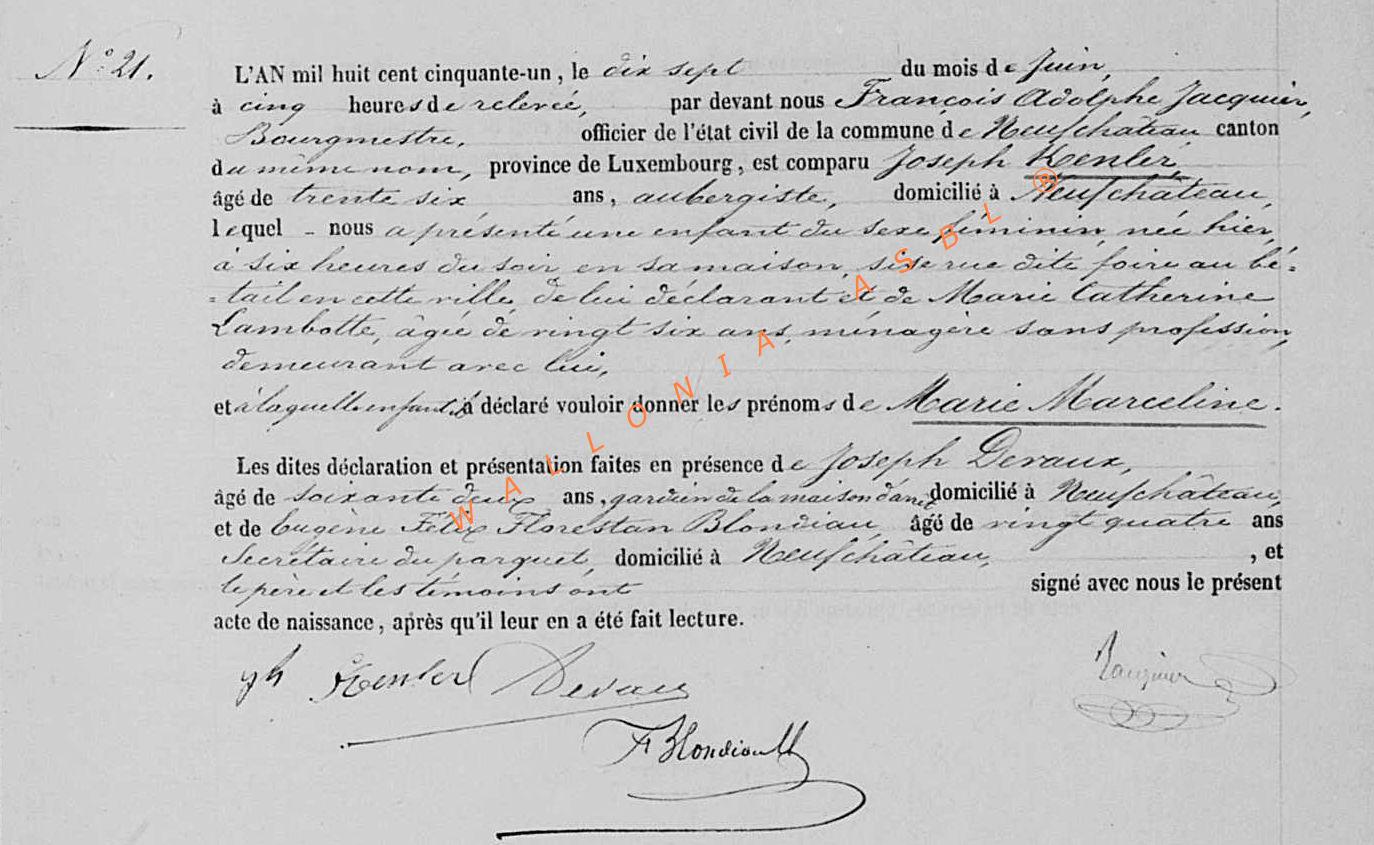 N° 21.
L'AN mil huit cent cinquante-un, le dix sept du mois de Juin,
à cinq heures de relevée, par devant nous François Adolphe Jacquier,
Bourgmestre, officier de l'état civil de la commune de Neufchâteau canton
du même nom, province de Luxembourg, est comparu Joseph Kenler,
âgé de trente six ans, aubergiste, domicilié à Neufchâteau,
lequel nous a présenté une enfant du sexe féminin, née hier,
à six heures du soir en sa maison, sise rue dite foire au bé=
=tail en cette ville, de lui déclarant et de Marie Catherine
Lambotte, âgée de vingt six ans, ménagère sans profession,
demeurant avec lui,
et à laquelle enfant il a déclaré vouloir donner les prénoms de Marie Marceline.
Les dites déclaration et présentation faites en présence de Joseph Devaux,
âgé de soixante deux ans, gardien de la maison d'arrêt domicilié à Neufchâteau,
et de Eugène Félix Florestan Blondiau, âgé de vingt quatre ans
Secrétaire du parquet, domicilié à Neufchâteau, , et
le père et les témoins ont signé avec nous le présent
acte de naissance, après qu'il leur en a été fait lecture.
Kenler Devaux
Jacquier
F Blondiau
WALLONIA ASBL ®